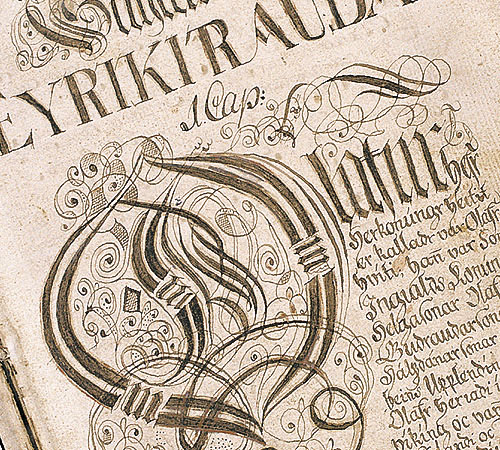 EYRIKI RAUDA
1 Cap:
Olafur
herkonungr
er kalladr var Olaf
hviti, han var Son
Ingialds Konu
Helgasonar Ola
Gudraudarson
Halfdanarsonar
beins Upplendi
Olafr heriadi
viking oc va